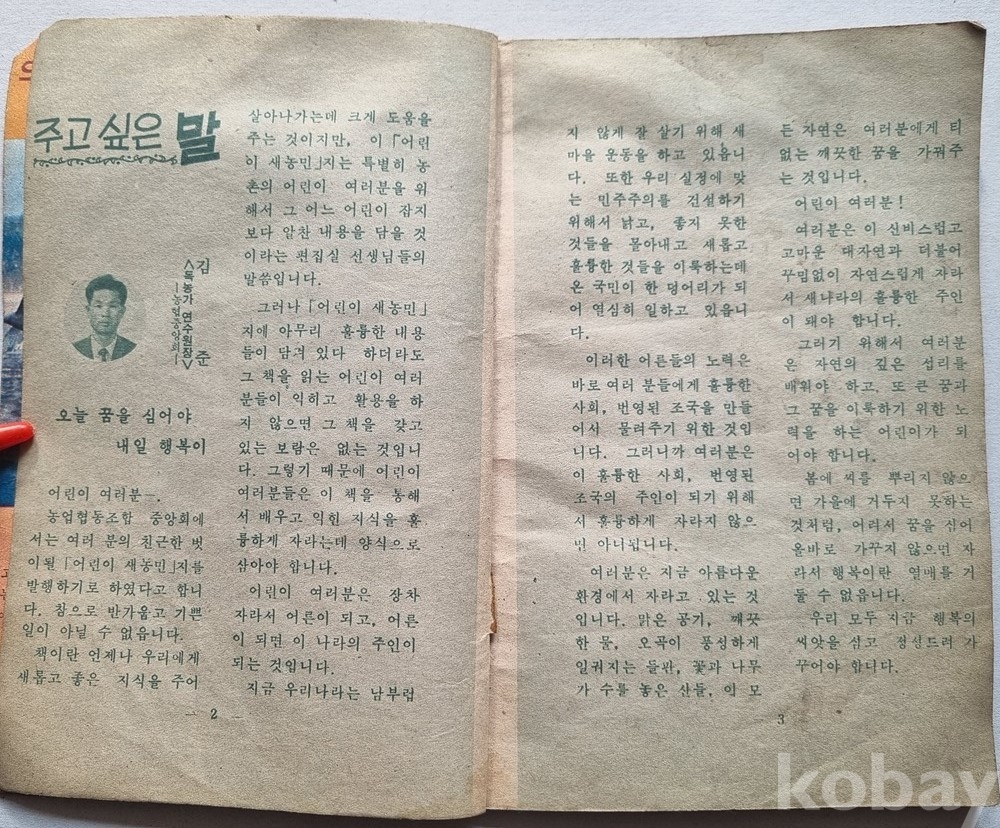 주고 싶은 말
김 준
<독농가 연수원장>
오늘 꿈을 심어야
내일 행복이
어린이 여러분―.
농업협동조합 중앙회에
서는 여러 분의 친근한 벗
이될 「어린이 새농민」지를
발행하기로 하였다고 합니
다. 참으로 반가웁고 기쁜
일이 아닐 수 없읍니다.
책이란 언제나 우리에게
새롭고 좋은 지식을 주어
살아나가는데 크게 도움을
주는 것이지만, 이 「어린
이 새농민」지는 특별히 농
촌의 어린이 여러분을 위
해서 그 어느 어린이 잡지
보다 알찬 내용을 담을 것
이라는 편집실 선생님들의
말씀입니다.
그러나 「어린이 새농민」
지에 아무리 훌륭한 내용
들이 담겨 있다 하더라도
그 책을 읽는 어린이 여러
분들이 익히고 활용을 하
지 않으면 그 책을 갖고
있는 보람은 없는 것입니
다. 그렇기 때문에 어린이
여러분들은 이 책을 통해
서 배우고 익힌 지식을 훌
륭하게 자라는데 양식으로
삼아야 합니다.
어린이 여러분은 장차
자라서 어른이 되고, 어른
이 되면 이 나라의 주인이
되는 것입니다.
지금 우리나라는 남부럽
― 2 ―
지 않게 잘 살기 위해 새
마을 운동을 하고 있읍니
다. 또한 우리 실정에 맞
는 민주주의를 건설하기
위해서 낡고, 좋지 못한
것들을 몰아내고 새롭고
훌륭한 것들을 이룩하는데
온 국민이 한 덩어리가 되
어 열심히 일하고 있읍니
다.
이러한 어른들의 노력은
바로 여러 분들에게 훌륭한
사회, 번영된 조국을 만들
어서 물려주기 위한 것입
니다. 그러니까 여러분은
이 훌륭한 사회, 번영된
조국의 주인이 되기 위해
서 훌륭하게 자라지 않으
면 아니됩니다.
여러분은 지금 아름다운
환경에서 자라고 있는 것
입니다. 맑은 공기, 깨끗
한 물, 오곡이 풍성하게
일궈지는 들판, 꽃과 나무
가 수를 놓은 산들, 이 모
든 자연은 여러분에게 티
없는 깨끗한 꿈을 가꿔주
는 것입니다.
어린이 여러분!
여러분은 이 신비스럽고
고마운 대자연과 더불어
꾸밈없이 자연스럽게 자라
서 새나라의 훌륭한 주인
이 돼야 합니다.
그러기 위해서 여러분
은 자연의 깊은 섭리를
배워야 하고, 또 큰 꿈과
그 꿈을 이룩하기 위한 노
력을 하는 어린이가 되
어야 합니다.
봄에 씨를 뿌리지 않으
면 가을에 거두지 못하는
것처럼, 어려서 꿈을 심어
올바로 가꾸지 않으면 자
라서 행복이란 열매를 거
둘 수 없읍니다.
우리 모두 지금 행복의
씨앗을 심고 정성드려 가
꾸어야 합니다.
3
kobay